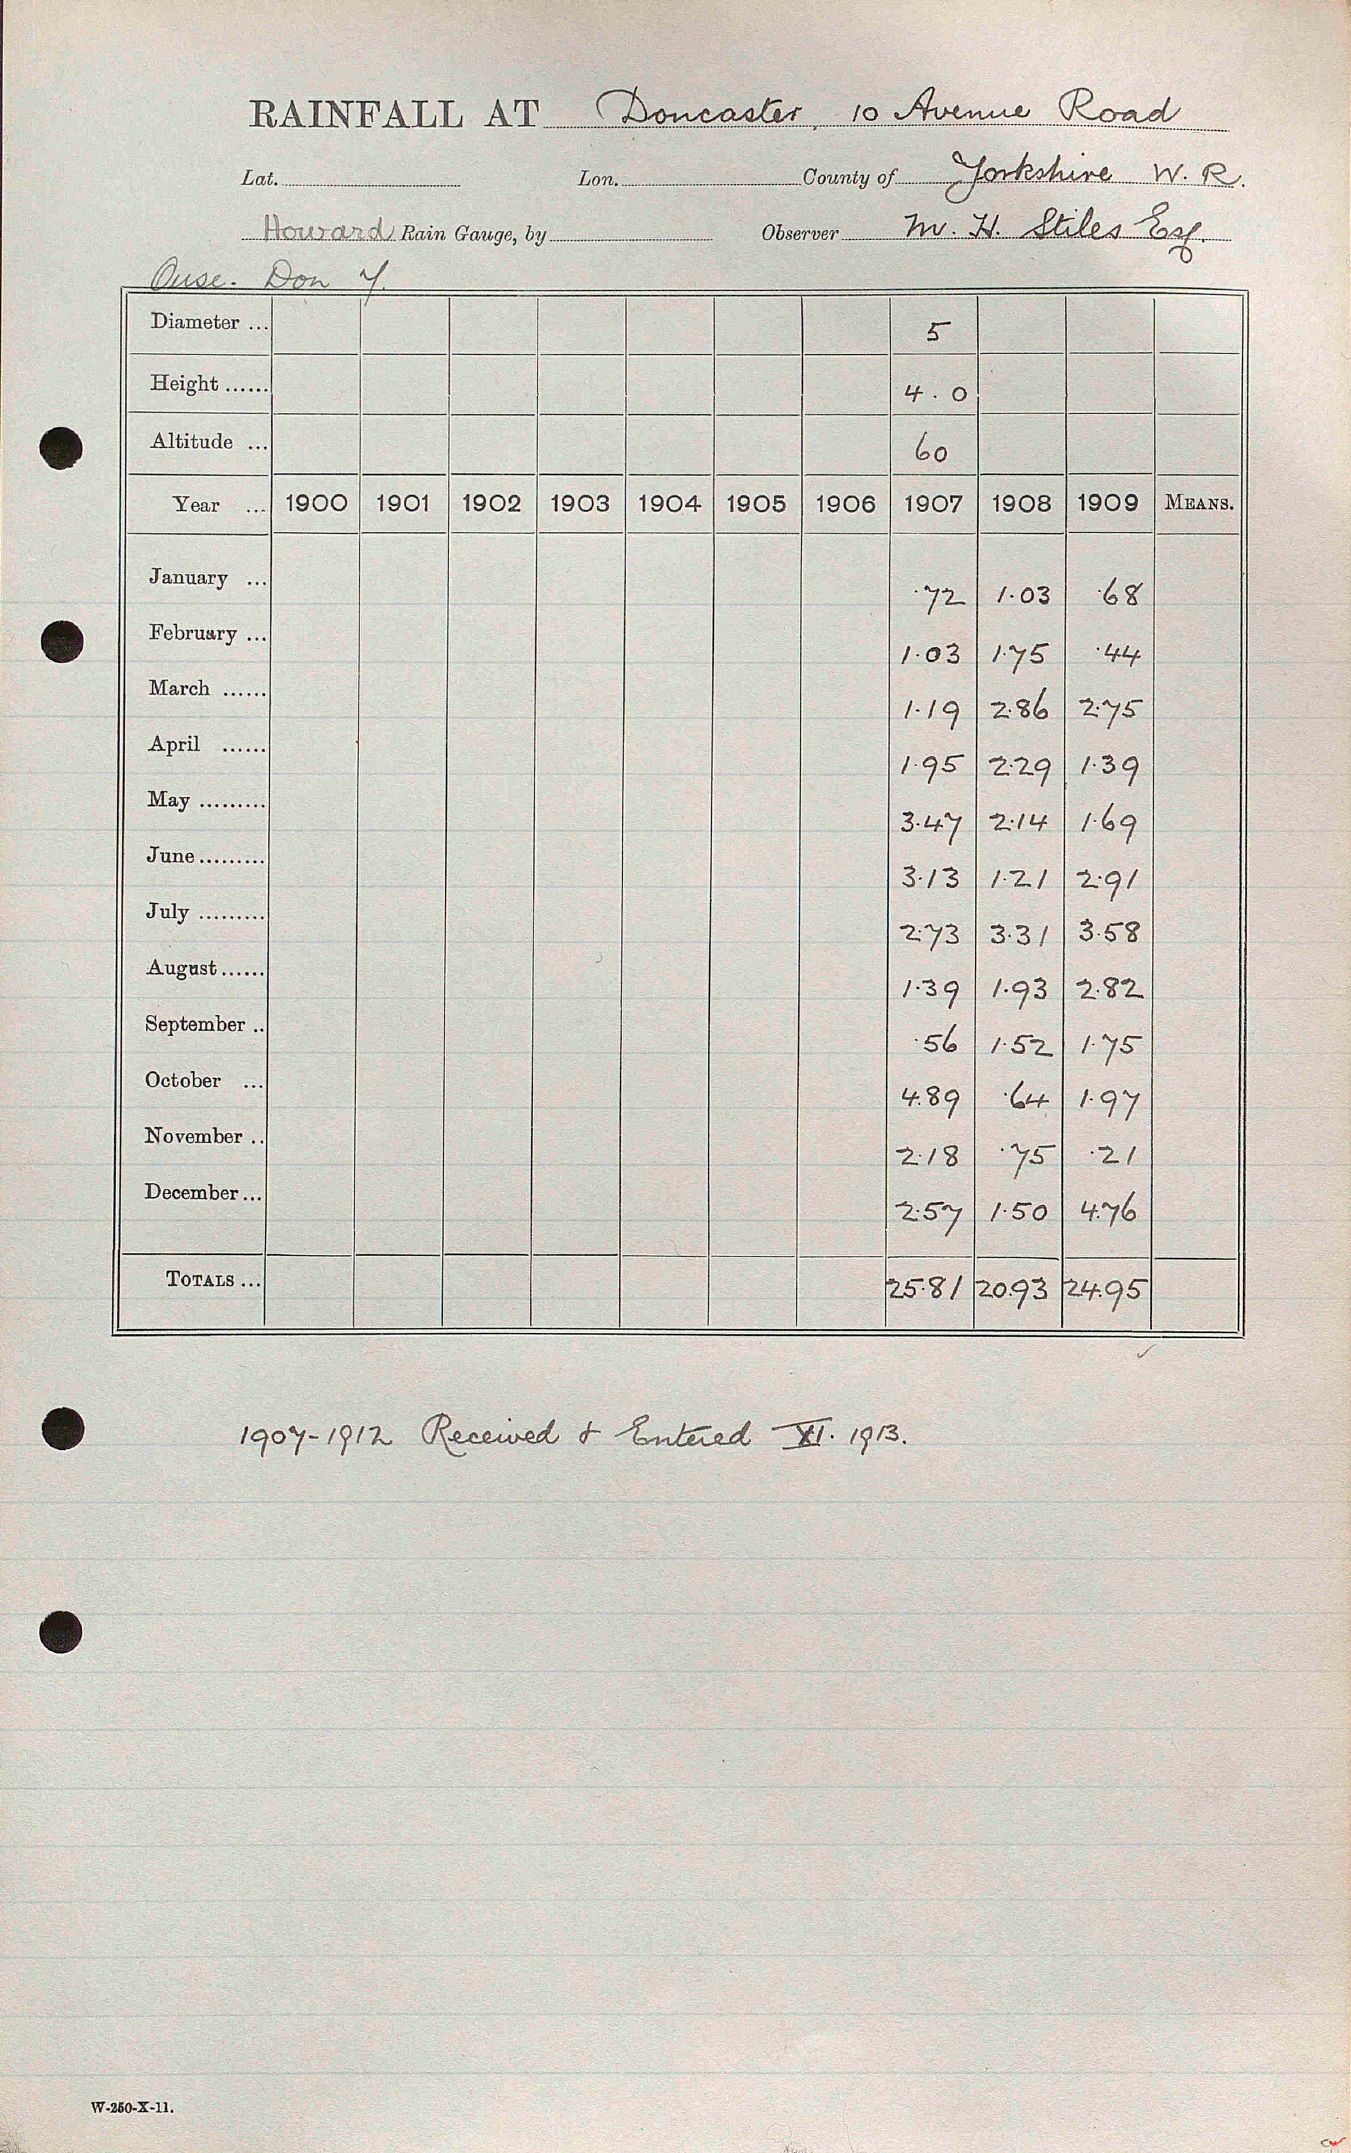 RAINFALL AT Doncaster, 10 Avenue Road
Lat. Lon. County of Yorkshire W. R.
Howard Rain Gauge, by Observer M. H. Stiles Esq.
Ouse. Don Y.
Diameter ... 5
Height ...... 4.0
Altitude ... 60
Year ... 1900 1901 1902 1903 1904 1905 1906 1907 1908 1909 MEANS.
January ... .72 1.03 .68
February ... 1.03 1.75 .44
March ...... 1.19 2.86 2.75
April ...... 1.95 2.29 1.39
May ......... 3.47 2.14 1.69
June ......... 3.13 1.21 2.91
July ......... 2.73 3.31 3.58
August ...... 1.39 1.93 2.82
September .. .56 1.52 1.75
October ... 4.89 .64 1.97
November .. 2.18 .75 .21
December ... 2.57 1.50 4.76
TOTALS ... 25.81 20.93 24.95
1907-1912 Received & Entered XI. 1913.
W-250-X-11.